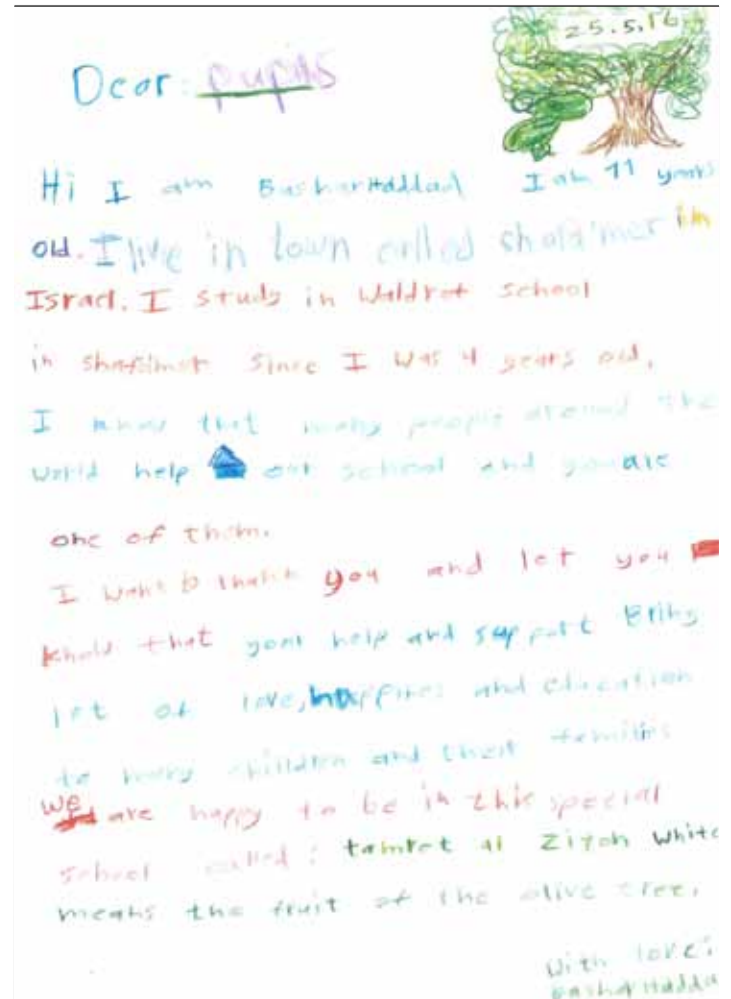 25.5.16
Dear: pupils
Hi I am Bashar Haddad I am 11 years
old. I live in town called shafa'mer in
Israel. I study in Waldrof school
in shafamer since I was 4 years old.
I know that many people around the
world help our school and you are
one of them.
I want to thank you and let you
know that your help and support Bring
lot of love, happines and education
to many children and their families
we are happy to be in this special
school called: tamret al Ziton white
means the fruit of the olive tree.
With love:
Bashar Hadda